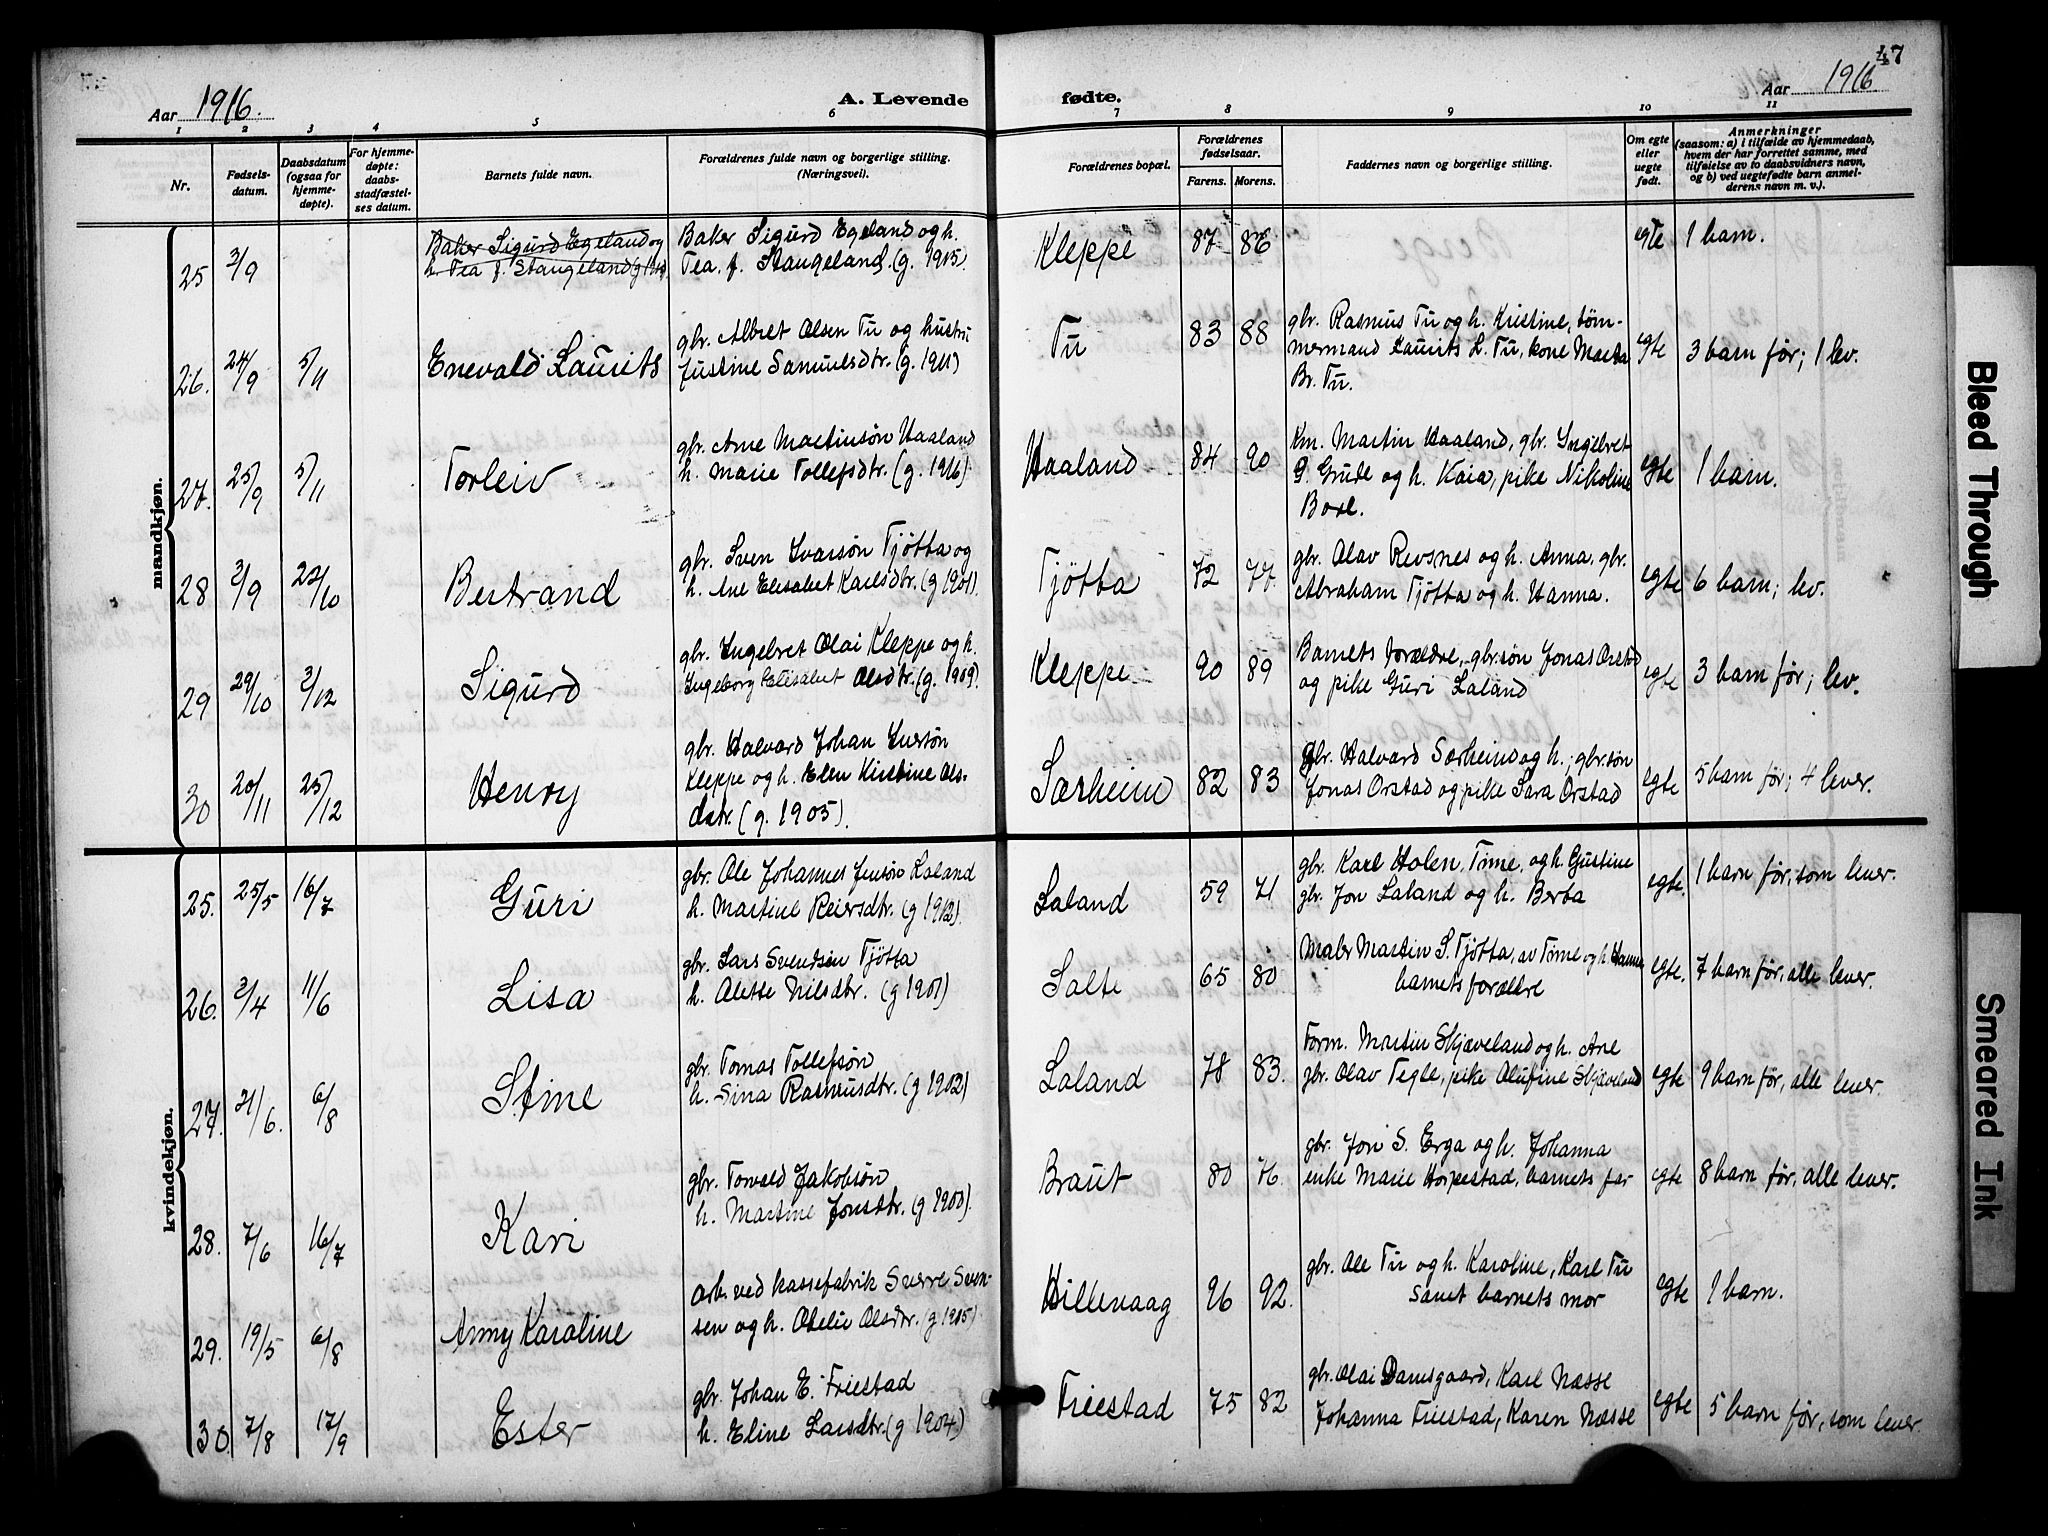 47
Aar 1916.
A. Levende
fødte.
Aar 1916
1 2 3 4 5 6 7 8 9 10 11
Nr.
Fødsels-
datum.
Daabsdatum
(ogsaa for
hjemme-
døpte).
For hjemme-
døpte:
daabs-
stadfæstel-
ses datum.
Barnets fulde navn.
Forældrenes fulde navn og borgerlige stilling.
(Næringsvei).
Forældrenes bopæl.
Forældrenes
fødselsaar.
Farens. Morens.
Faddernes navn og borgerlige stilling.
Om egte
eller
uegte
født.
Anmerkninger
(saasom: a) i tilfælde av hjemmedaab,
hvem der har forrettet samme, med
tilføielse av to daabsvidners navn,
og b) ved uegtefødte barn anmel-
derens navn m. v.).
mandkjøn.
25 3/9
Baker Sigurd Egeland og
h. Tea f. Stangeland
Baker Sigurd Egeland og h.
Tea. f. Stangeland. (g. 1915).
Kleppe 87 86 egte 1 barn.
26. 24/9 5/11 Enevald Laurits
gbr. Albret Olsen Tu og hustru
Justine Samuelsdtr. (g. 1911)
Tu 83 88
gbr. Rasmus Tu og h. Kristine, tøm-
mermand Laurits L. Tu, kone Marta
Br. Tu.
egte 3 barn før; 1 lev.
27. 25/9 5/11 Torleiv
gbr. Arne Martinsøn Haaland
h. Marie Tollefsdtr. (g. 1916).
Haaland 84 90
Km. Martin Haaland, gbr. Ingebret
G. Grude og h. Kaia, pike Nikoline
Bore.
egte 1 barn.
28 3/9 22/10 Bertrand
gbr. Sven Ivarsøn Tjøtta og
h. Ane Elisabet Karlsdtr. (g 1901).
Tjøtta 72 77.
gbr. Olav Revsnes og h. Anna, gbr.
Abraham Tjøtta og h. Hanna.
egte 6 barn; lev.
29 29/10 3/12 Sigurd
gbr. Ingebret Olai Kleppe og h.
Ingeborg Elisabet Olsdtr. (g. 1909).
Kleppe 90 89
Barnets forældre, gbr.søn Jonas Orstad
og pike Guri Laland
egte 3 barn før; lev.
30 20/11 25/12 Henry
gbr. Halvard Johan Iversøn
Kleppe og h. Elen Kirstine Ols-
datr. (g. 1905).
Særheim 82 83
gbr. Halvard Særheim og h.; gbr.søn
Jonas Orstad og pike Sara Orstad
egte 5 barn før; 4 lever.
kvindekjøn.
25. 25/5 16/7 Guri
gbr. Ole Johannes Jensøn Laland
h. Martine Reiersdtr. (g 1912).
Laland 59 71
gbr. Karl Holen, Time, og h. Gustine
gbr. Jon Laland og h. Berta
egte. 1 barn før, som lever.
26. 3/4 11/6 Lisa
gbr. Lars Svendsen Tjøtta
h. Alette Nilsdtr. (g 1901)
Salte 65 80
Maler Martin S. Tjøtta, av Time og h. Hanna
barnets forældre
egte. 7 barn før, alle lever.
27. 21/6. 6/8 Stine
gbr. Tomas Tollefsøn
h. Sina Rasmusdtr. (g 1902)
Laland 78 83.
Form. Martin Skjæveland og h. Ane
gbr. Olav Tegle, pike Alufine Skjæveland
egte 9 barn før, alle lever.
28. 7/6 16/7 Kari
gbr. Torvald Jakobsøn
h. Martine Jonsdtr. (g 1900).
Braut 80 76.
gbr. Jon S. Erga og h. Johanna
enke Marie Horpestad, barnets far
egte 8 barn før, alle lever.
29. 19/5 6/8 Anny Karoline
arb. ved kassefabrik Sverre Sven-
sen og h. Otelie Olsdtr. (g 1915).
Hillevaag 96 92.
gbr. Ole Tu og h. Karoline, Karl Tu
samt barnets mor
egte 1 barn.
30. 7/8 17/9 Ester
gbr. Johan E. Friestad
h. Eline Larsdtr. (g 1904)
Friestad 75 82
gbr. Olai Damsgaard, Karl Næsse
Johanna Friestad, Karen Næsse
egte 5 barn før, som lever.
Bleed Through
Smeared Ink